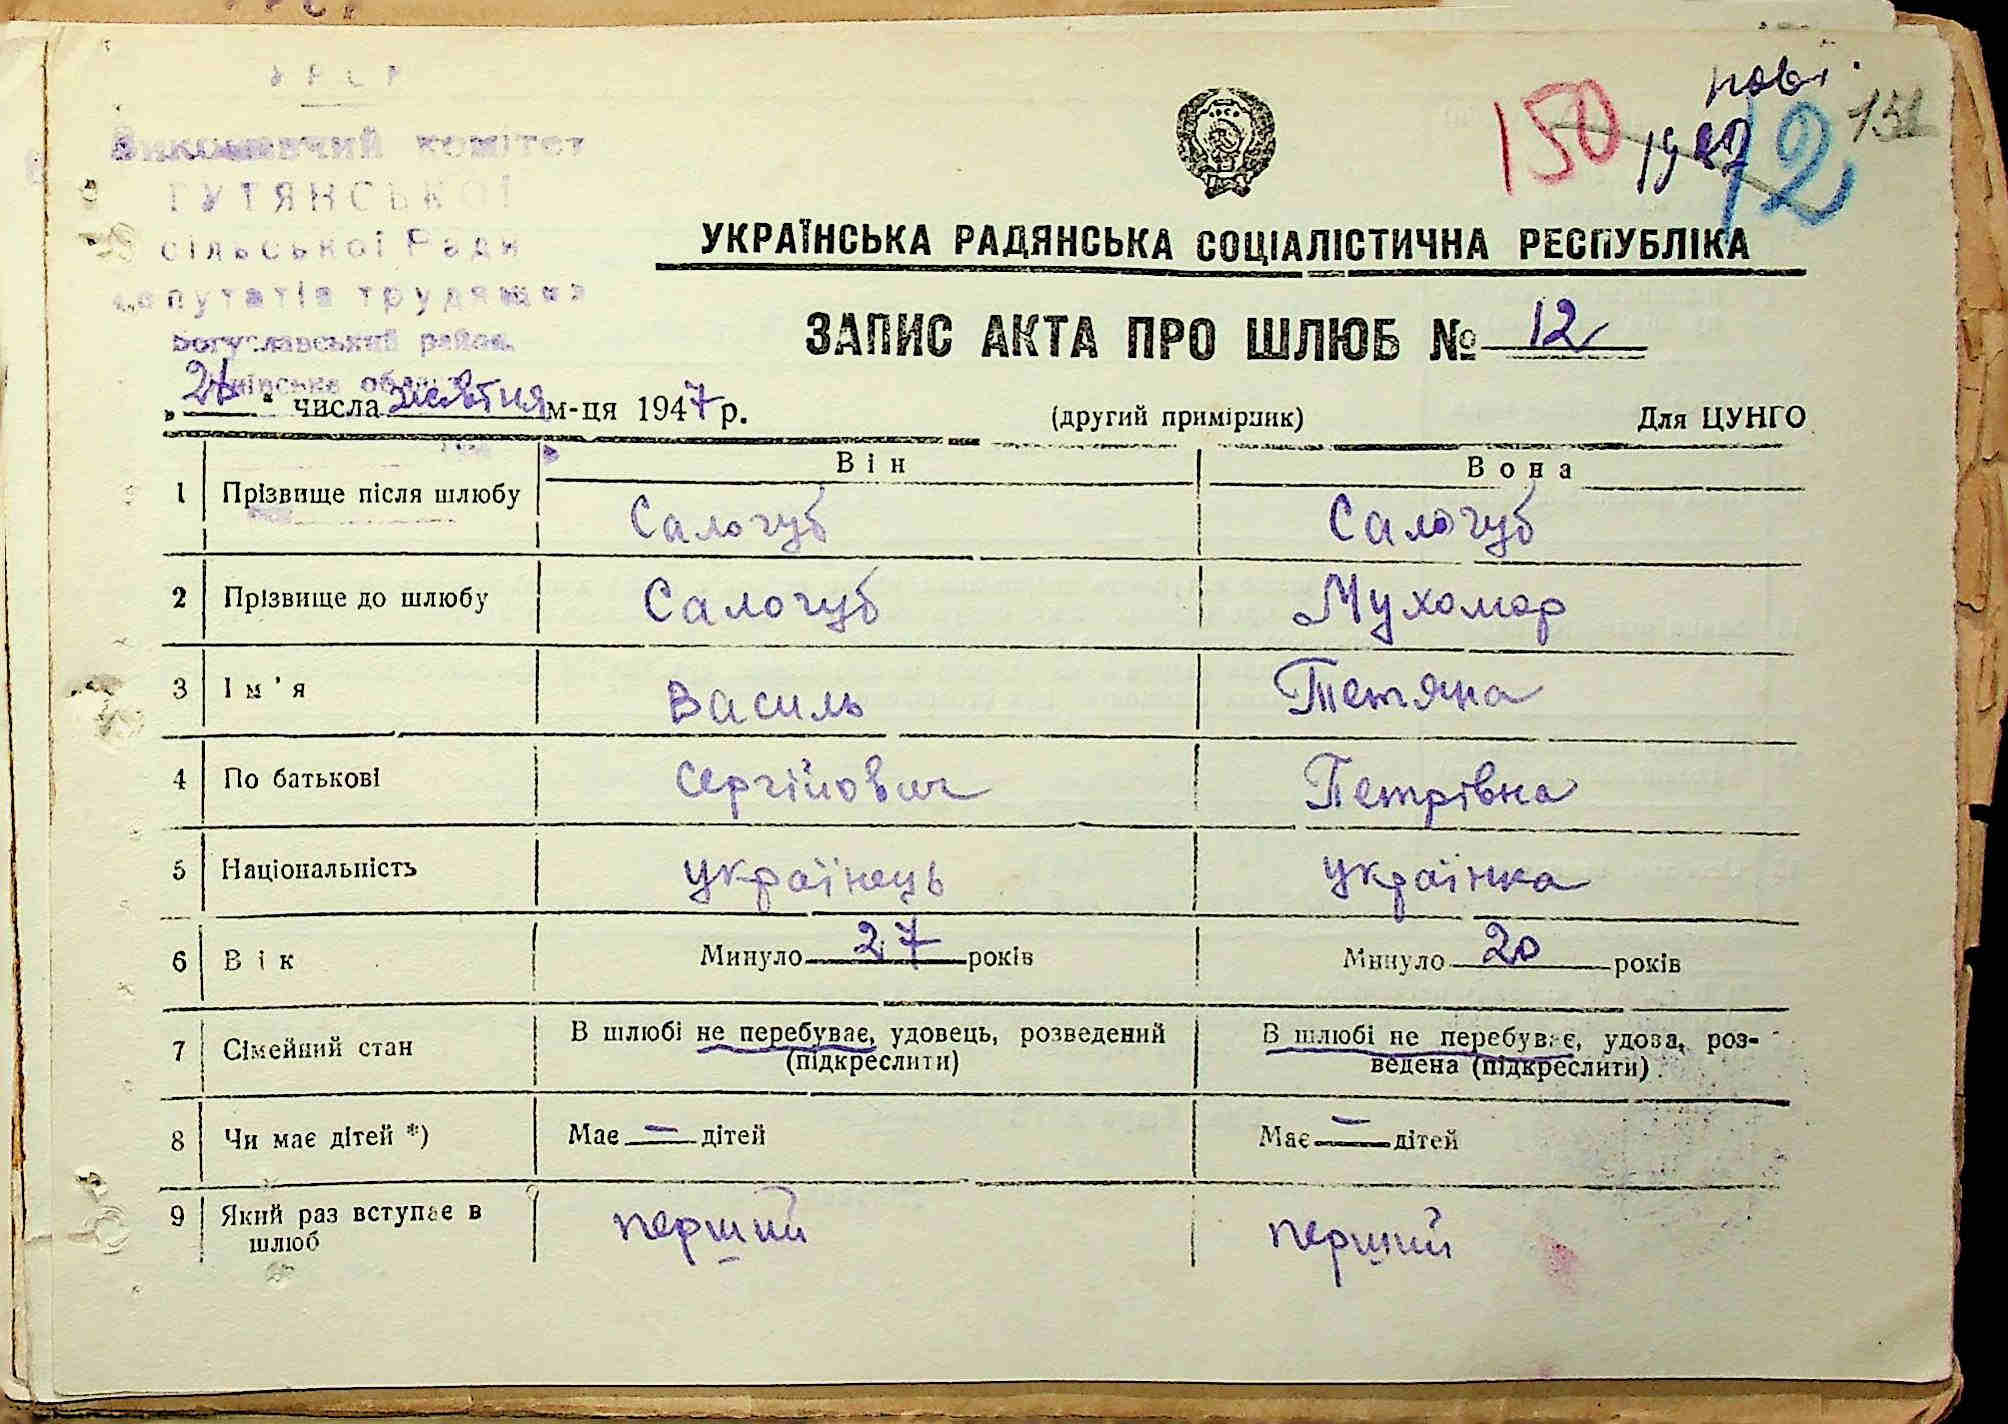 УРСР
Виконавчий комітет
ГУТЯНСЬКОЇ
сільської Ради
депутатів трудящих
Богуславський район,
Київська
150
1947
12
131
УКРАЇНСЬКА РАДЯНСЬКА СОЦІАЛІСТИЧНА РЕСПУБЛІКА
ЗАПИС АКТА ПРО ШЛЮБ № 12
„ “ числа жовтня м-ця 1947 р. (другий примірник) Для ЦУНГО
Він Вона
1 Прізвище після шлюбу Салогуб Салогуб
2 Прізвище до шлюбу Салогуб Мухомор
3 Ім'я Василь Тетяна
4 По батькові Сергійович Петрівна
5 Національність українець українка
6 Вік Минуло 27 років Минуло 20 років
7 Сімейний стан В шлюбі не перебуває, удовець, розведений В шлюбі не перебуває, удова, роз-
(підкреслити) ведена (підкреслити)
8 Чи має дітей *) Має — дітей Має — дітей
9 Який раз вступає в перший перший
шлюб